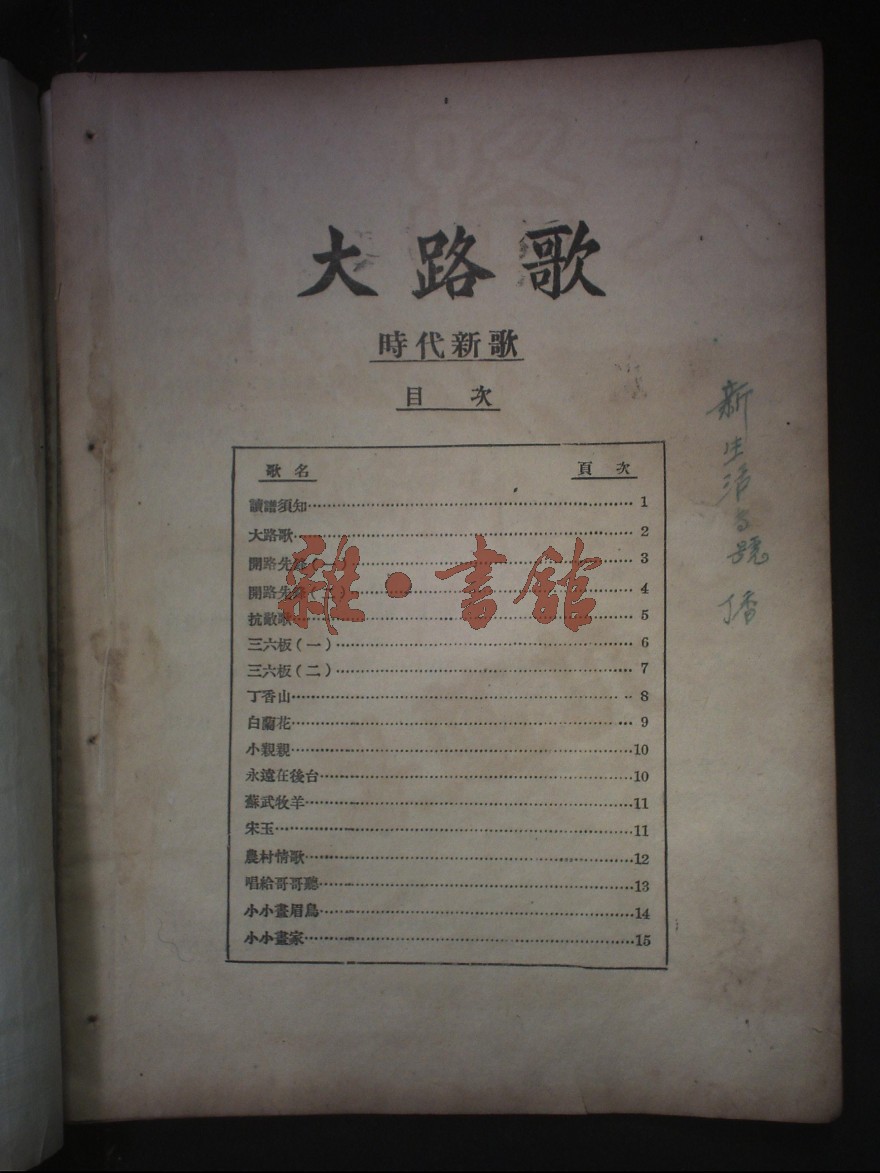 大路歌
時代新歌
目次
歌名 頁次
讀譜須知 1
大路歌 2
開路先鋒(一) 3
開路先鋒(二) 4
抗敵歌 5
三六板(一) 6
三六板(二) 7
丁香山 8
白蘭花 9
小親親 10
永遠在後台 10
蘇武牧羊 11
宋玉 11
農村情歌 12
唱給哥哥聽 13
小小畫眉鳥 14
小小畫家 15
雜·書館
新生活
號